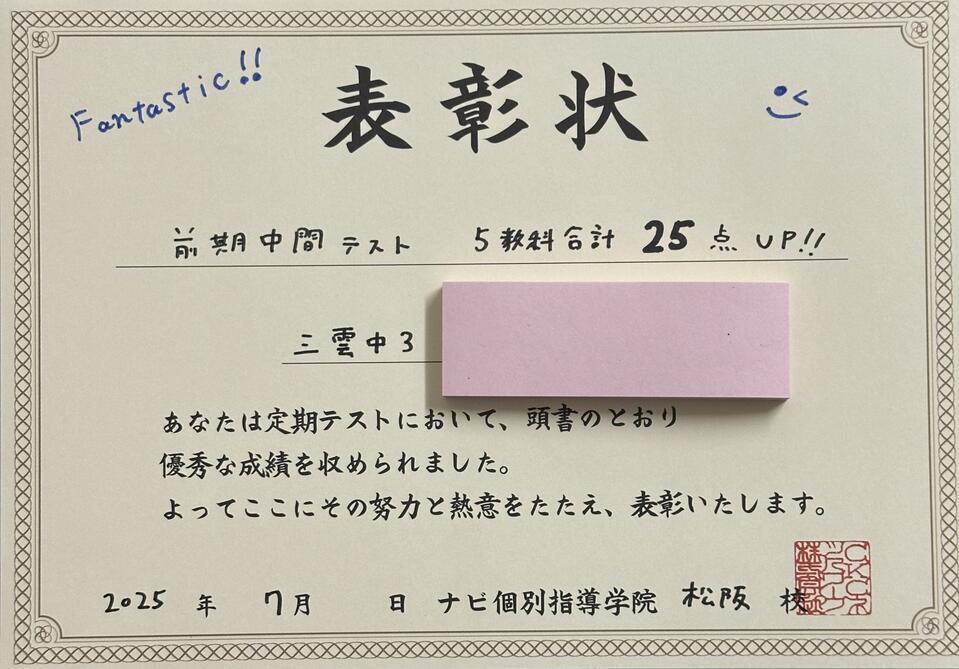 Fantastic!!
表彰状
前期中間テスト 5教科合計 25点 UP!!
三雲中3
あなたは定期テストにおいて、頭書のとおり
優秀な成績を収められました。
よってここにその努力と熱意をたたえ、表彰いたします。
2025年 7月 日 ナビ個別指導学院 松阪 校